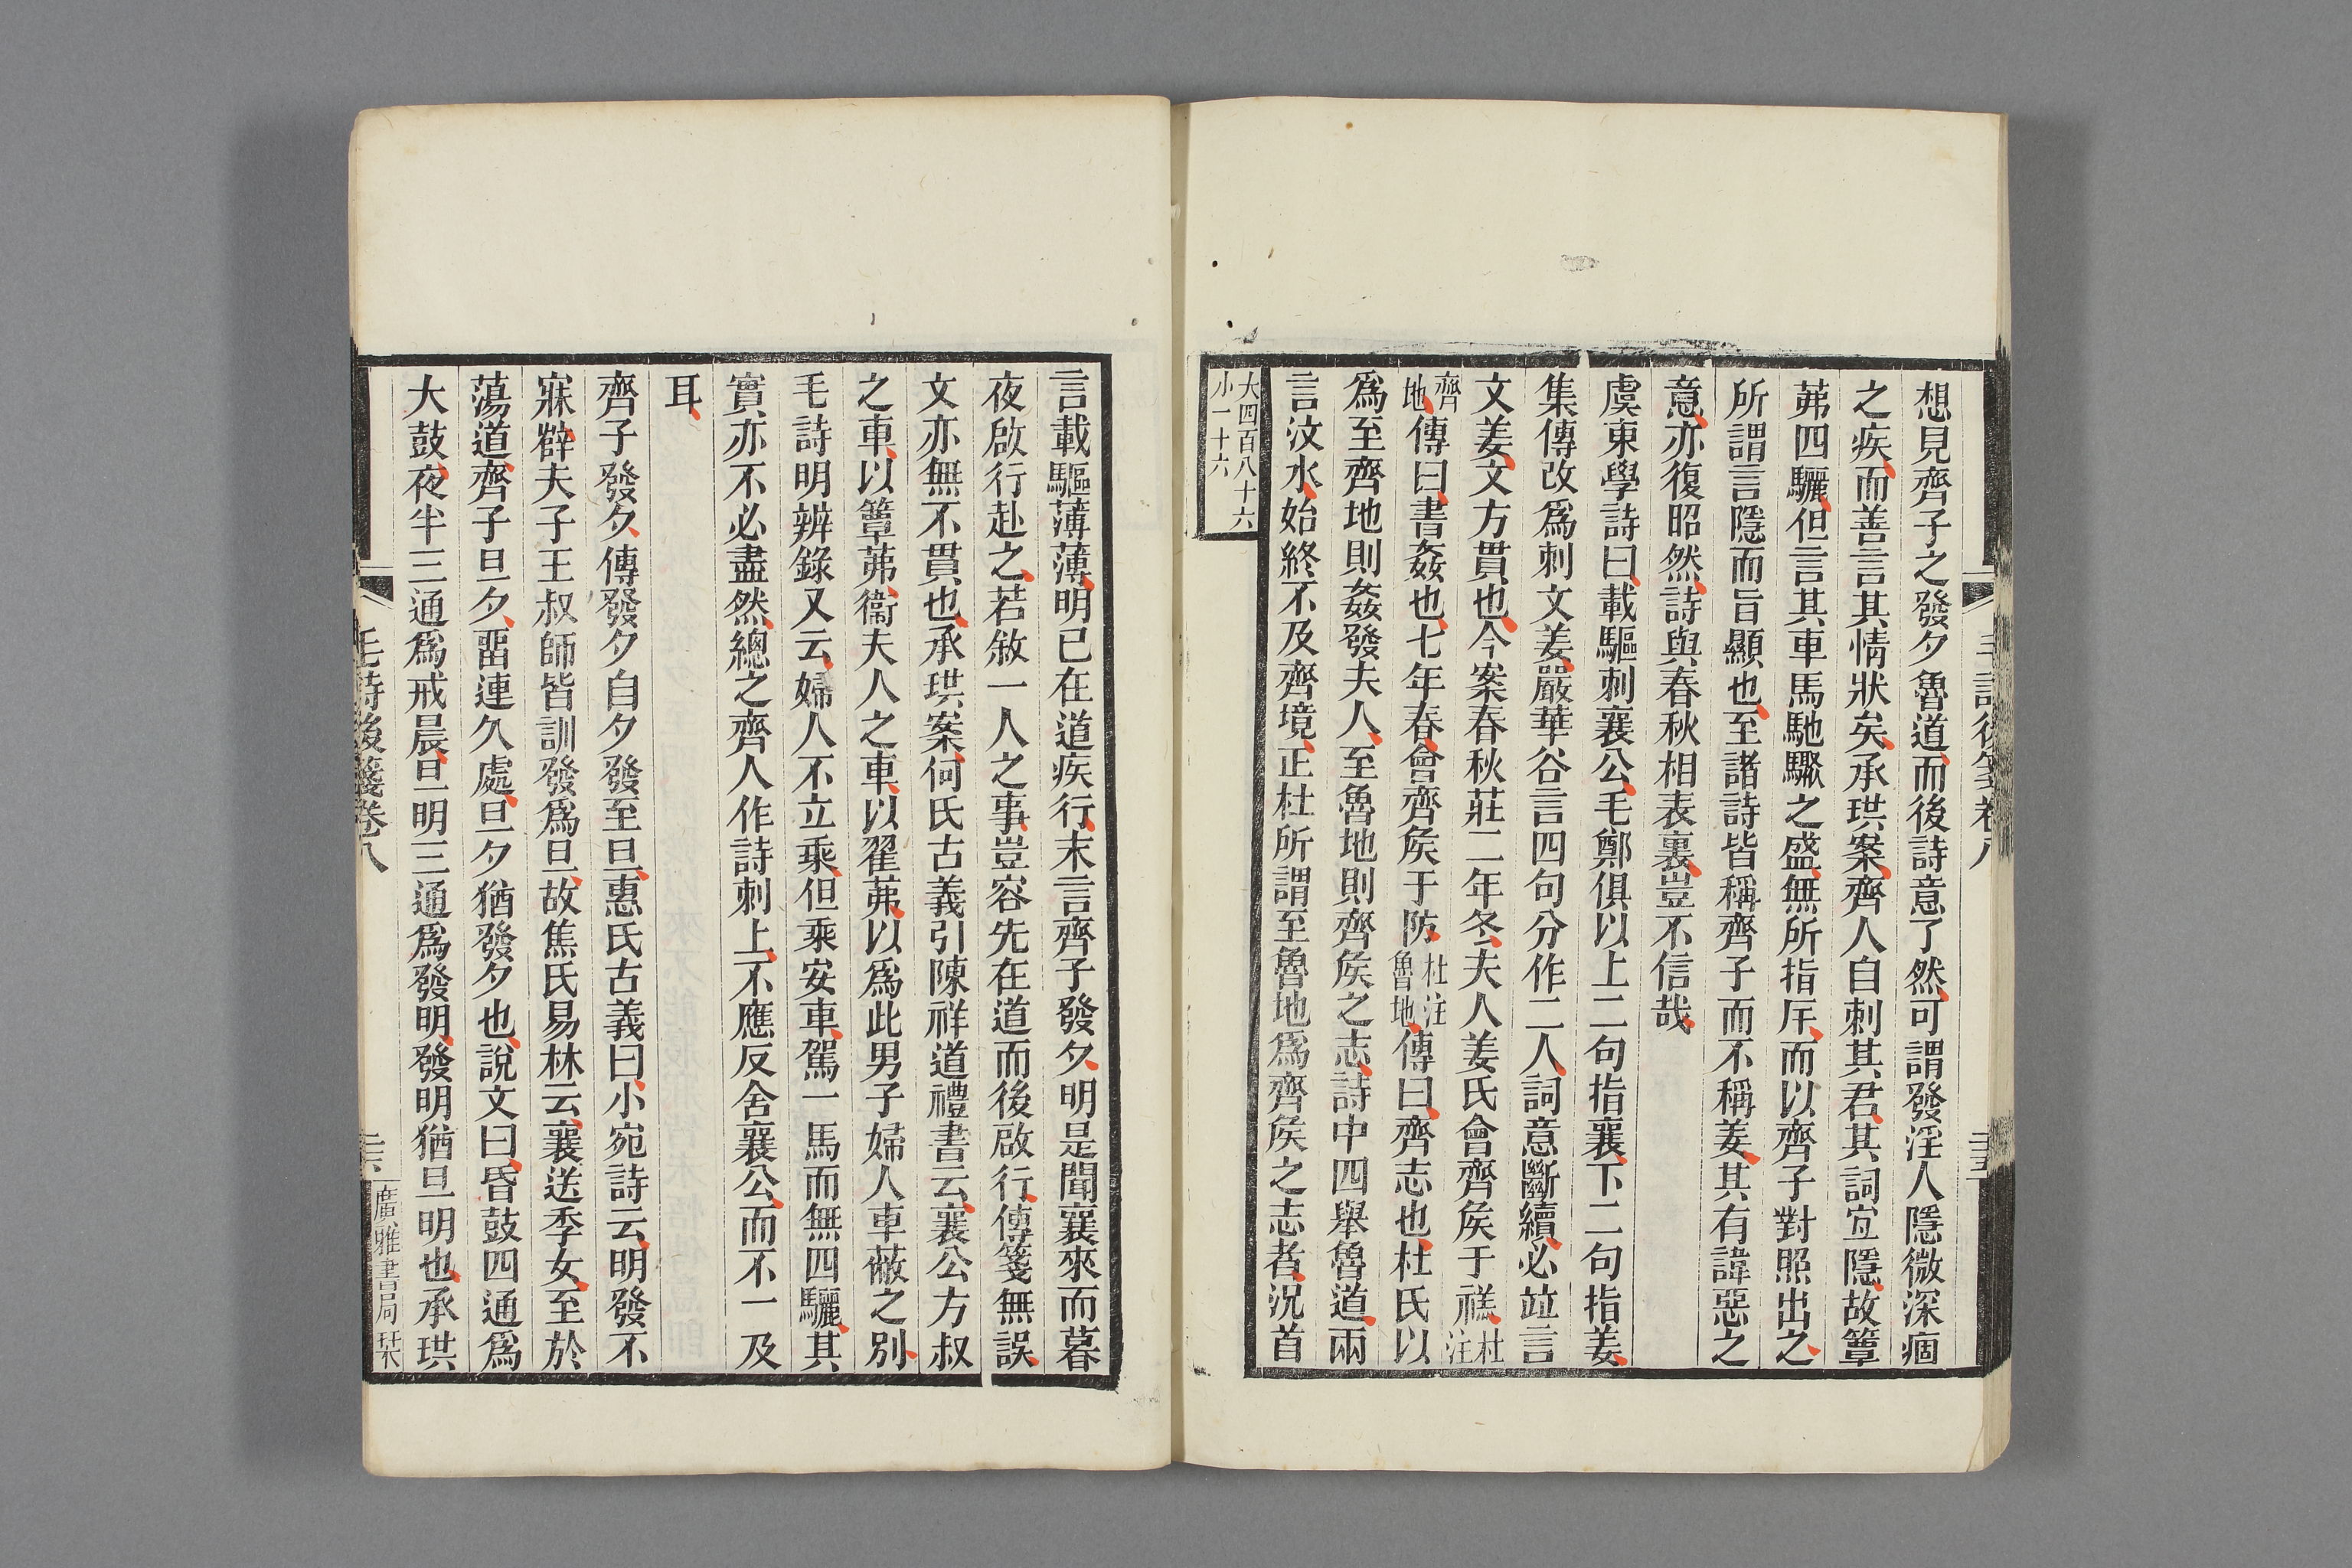 想見齊子之發夕魯道而後詩意了然可謂發淫人隱微深痼
之疾而善言其情狀矣承珙案齊人自刺其君其詞宜隱故簟
茀四驪但言其車馬馳驟之盛無所指斥而以齊子對照出之
所謂言隱而旨顯也至諸詩皆稱齊子而不稱姜其有諱惡之
意亦復昭然詩與春秋相表裏豈不信哉
虞東學詩曰載驅刺襄公毛鄭俱以上二句指襄下二句指姜
集傳改爲刺文姜嚴華谷言四句分作二人詞意斷續必竝言
文姜文方貫也今案春秋莊二年冬夫人姜氏會齊矦于禚杜注
齊地傳曰書姦也七年春會齊矦于防杜注魯地傳曰齊志也杜氏以
爲至齊地則姦發夫人至魯地則齊矦之志詩中四舉魯道兩
言汶水始終不及齊境正杜所謂至魯地爲齊矦之志者況首
大四百八十六
小一十六
言載驅薄薄明已在道疾行末言齊子發夕明是聞襄來而暮
夜啟行赴之若敘一人之事豈容先在道而後啟行傳箋無誤
文亦無不貫也承珙案何氏古義引陳祥道禮書云襄公方叔
之車以簟茀衞夫人之車以翟茀以爲此男子婦人車蔽之別
毛詩明辨錄又云婦人不立乘但乘安車駕一馬而無四驪其
實亦不必盡然總之齊人作詩刺上不應反舍襄公而不一及
耳
齊子發夕傳發夕自夕發至旦惠氏古義曰小宛詩云明發不
寐薛夫子王叔師皆訓發爲旦故焦氏易林云襄送季女至於
蕩道齊子旦夕畱連久處旦夕猶發夕也說文曰昏鼓四通爲
大鼓夜半三通爲戒晨旦明三通爲發明發明猶旦明也承珙
毛詩後箋卷八
廣雅書局栞